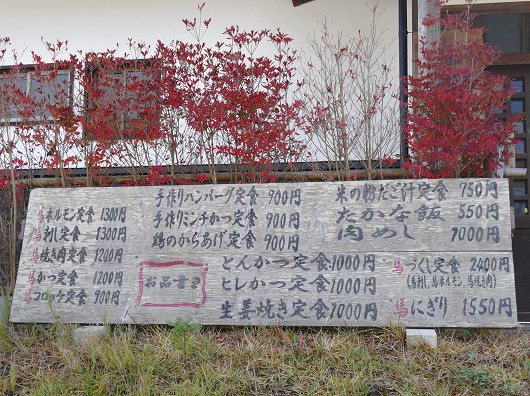 馬ホルモン定食 1300円
馬刺し定食 1300円
馬焼き肉定食 1200円
馬かつ定食 1200円
馬コロッケ定食 900円
手作りハンバーグ定食 900円
手作りミンチかつ定食 900円
鶏のからあげ定食 900円
お品書き
とんかつ定食 1000円
ヒレかつ定食 1000円
生姜焼き定食 1000円
米の粉だご汁定食 750円
たかな飯 550円
肉めし 1000円
馬づくし定食 2400円
(馬刺し、馬ホルモン、馬焼き肉)
馬にぎり 1550円